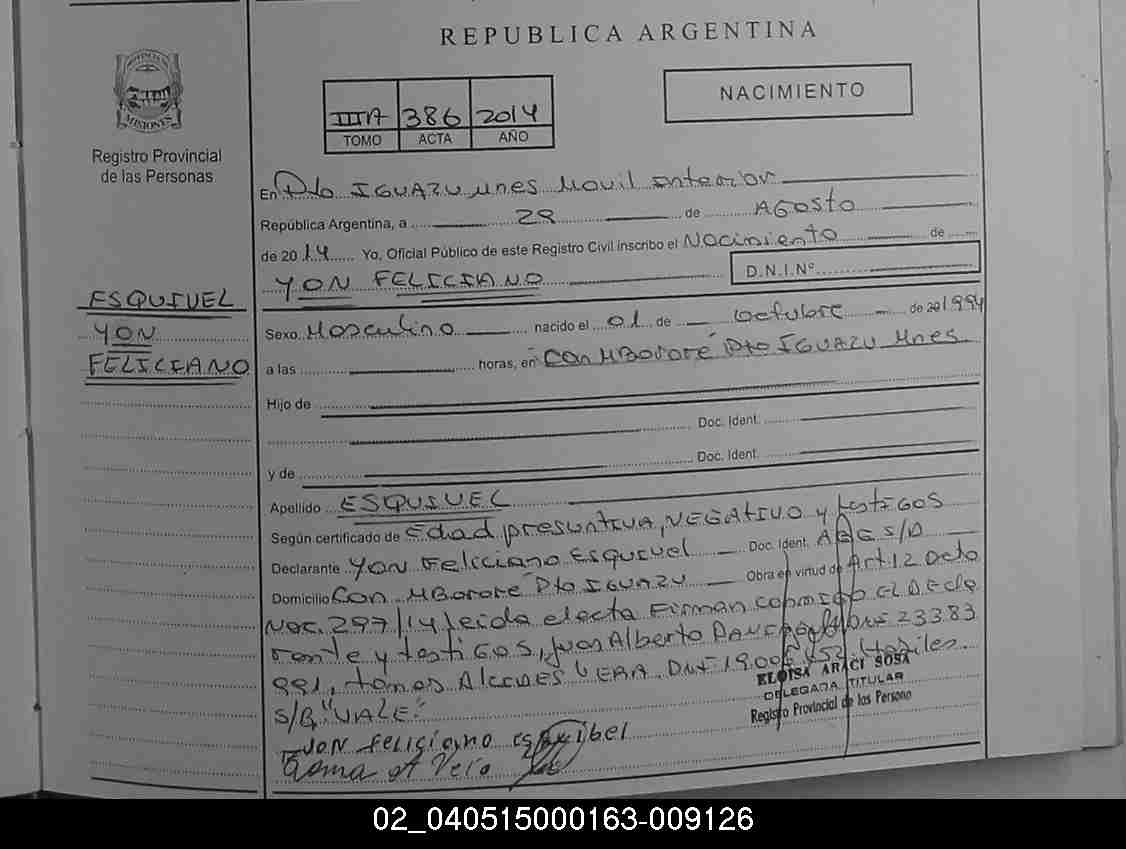 REPUBLICA ARGENTINA
PROVINCIA DE
MISIONES
Registro Provincial
de las Personas
NACIMIENTO
IIIA 386 2014
TOMO ACTA AÑO
En Pto IGUAZU Mnes Movil Interior
República Argentina, a 29 de AGosto
de 2014 Yo, Oficial Público de este Registro Civil inscribo el Nacimiento de
YON FELICIANO D.N.I.Nº
ESQUIVEL
YON
FELICIANO
Sexo Masculino nacido el 01 de octubre de 201994
a las horas, en Com MBororé Pto IGUAZU Mnes
Hijo de
Doc. Ident.
y de Doc. Ident.
Apellido ESQUIVEL
Según certificado de Edad presuntiva, NEGATIVO y testiGOS
Declarante YON Feliciano Esquivel Doc. Ident. S/D
Domicilio Com MBororé Pto IGUAZU Obra en virtud de Art 12 Dcto
Nac. 297/14 leida el acta Firman conmigo El Decla
rante y testiGOS, Juan Alberto 23383
991, tomas Alcides VERA DNI 19.006.452. Habiles.
S/B "VALE"
ELOISA ARACI SOSA
DELEGADA TITULAR
Registro Provincial de las Persona
YON feliciano esquibel
Vera
02_040515000163-009126